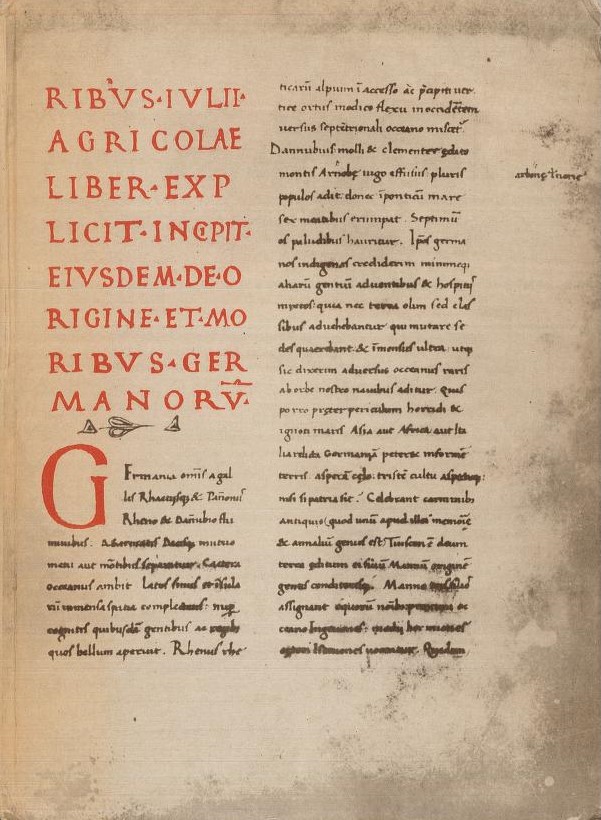 RIBVS·IVLII·
AGRICOLAE
LIBER·EXP
LICIT·INCIPIT·
EIVSDEM·DE·O
RIGINE·ET·MO
RIBVS·GER
MANORV̅·
Germania om̅is a gal
lis Rhaetisq; & Pa̅noniis
Rheno & Danubio flu
minibus: a Sarmatis Dacisq; mutuo
metu aut mo̅tibus separatur. Caetera
occeanus ambit Latos sinus et i̅sula
ru̅ inmensa spatia complectens: nup
cognitis quibusda̅ gentibus ac regib
quos bellum aperuit. Rhenus rhe
ticaru̅ alpium i̅accesso ac p̅cipiti ver
tice ortus modico flexu in occide̅tem
versus septe̅trionali occeano miscet᷑
Dannubius molli & clementer edito
montis Arnobę iugo effusus pluris
populos adit: donec i̅ ponticu̅ mare
sex meatibus erumpat. Septimu̅
os paludibus hauritur. Ip̅os germa
nos indigenas crediderim minimeq;
aliaru̅ gentiu̅ adventibus & hospitiis
mixtos: quia nec terra olim sed clas
sibus advehebantur qui mutare se
des quaerebant: & i̅mensus ultra: utq;
sic dixerim adversus occeanus raris
ab orbe nostro navibus aditur. Quis
porro pręter periculum horridi &
ignoti maris Asia aut Africa aut Ita
lia relicta Germania̅ peteret informe̅
terris: aspera̅ cęlo: triste̅ cultu aspectuq;:
nisi si patria sit? Celebrant carminib
antiquis (quod unu̅ apud illos memorię
& annaliu̅ genus est) Tuistone̅ deum
terra editum et filiu̅ Mannu̅ origine̅
gentis conditorisq;. Manno tris filios
assignant e quoru̅ no̅ibus proximi oc
ceano Ingaevones: medii hermiones
cęteri Istaevones vocantur. Quidam